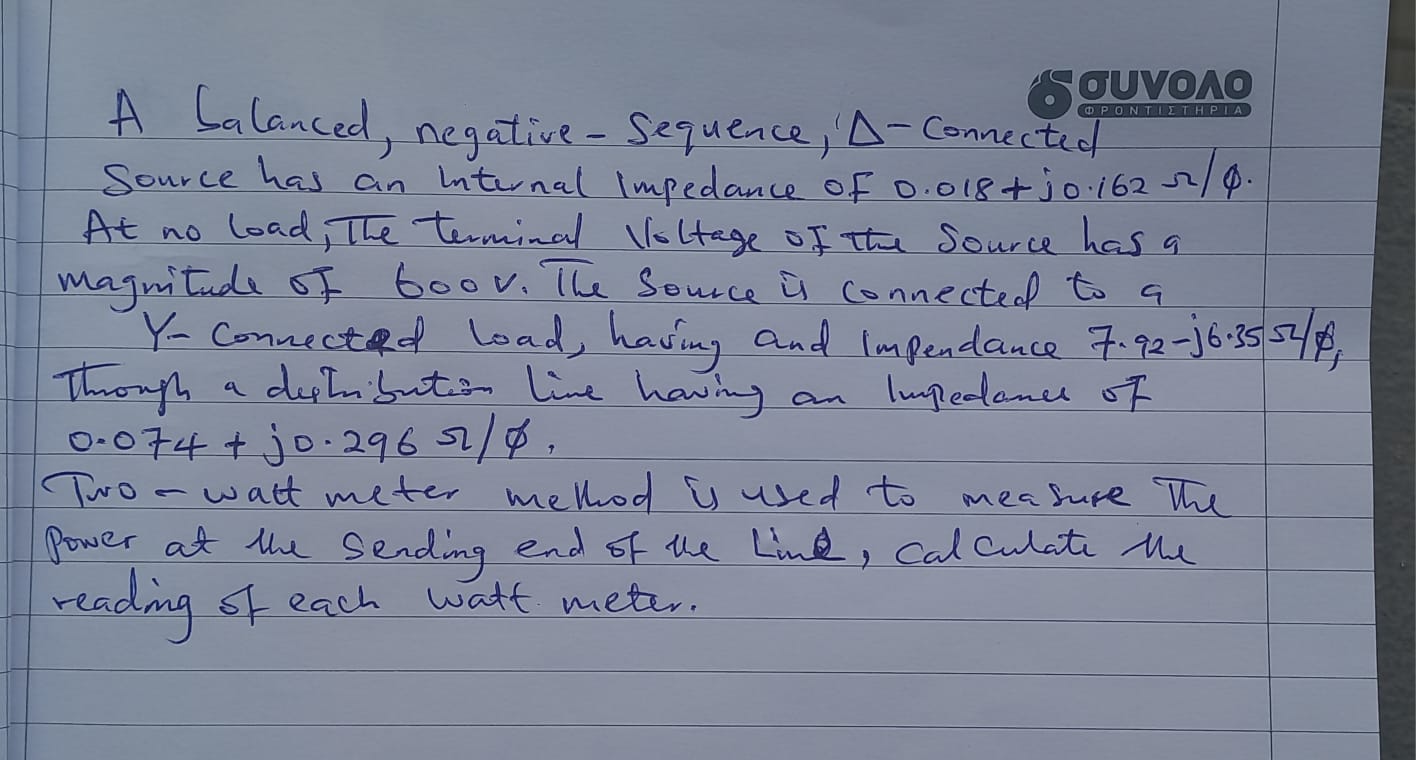 σύνολο
ΦΡΟΝΤΙΣΤΗΡΙΑ
A balanced, negative - Sequence, Δ - Connected
Source has an internal Impedance of 0.018 + j0.162 Ω/φ.
At no load, The terminal Voltage of the Source has a
magnitude of 600 v. The Source is connected to a
Y- Connected load, having and Impendance 7.92 - j6.35 Ω/φ,
Through a distribution line having an Impedance of
0.074 + j0.296 Ω/φ.
Two - watt meter method is used to measure The
Power at the Sending end of the Line, calculate the
reading of each watt meter.